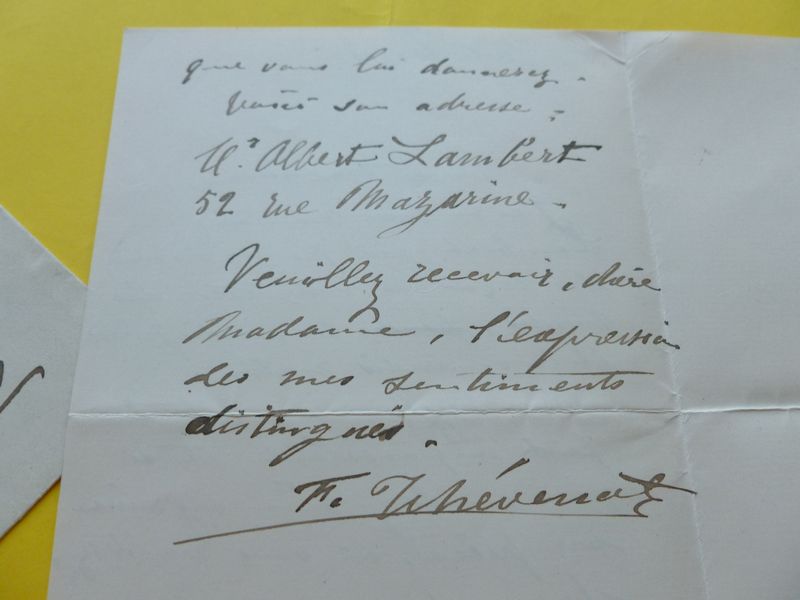 que vous lui donnerez.
Voici son adresse :
Mr Albert Lambert
52 rue Mazarine.
Veuillez recevoir, chère
Madame, l'expression
des mes sentiments
distingués.
F. Thévenot